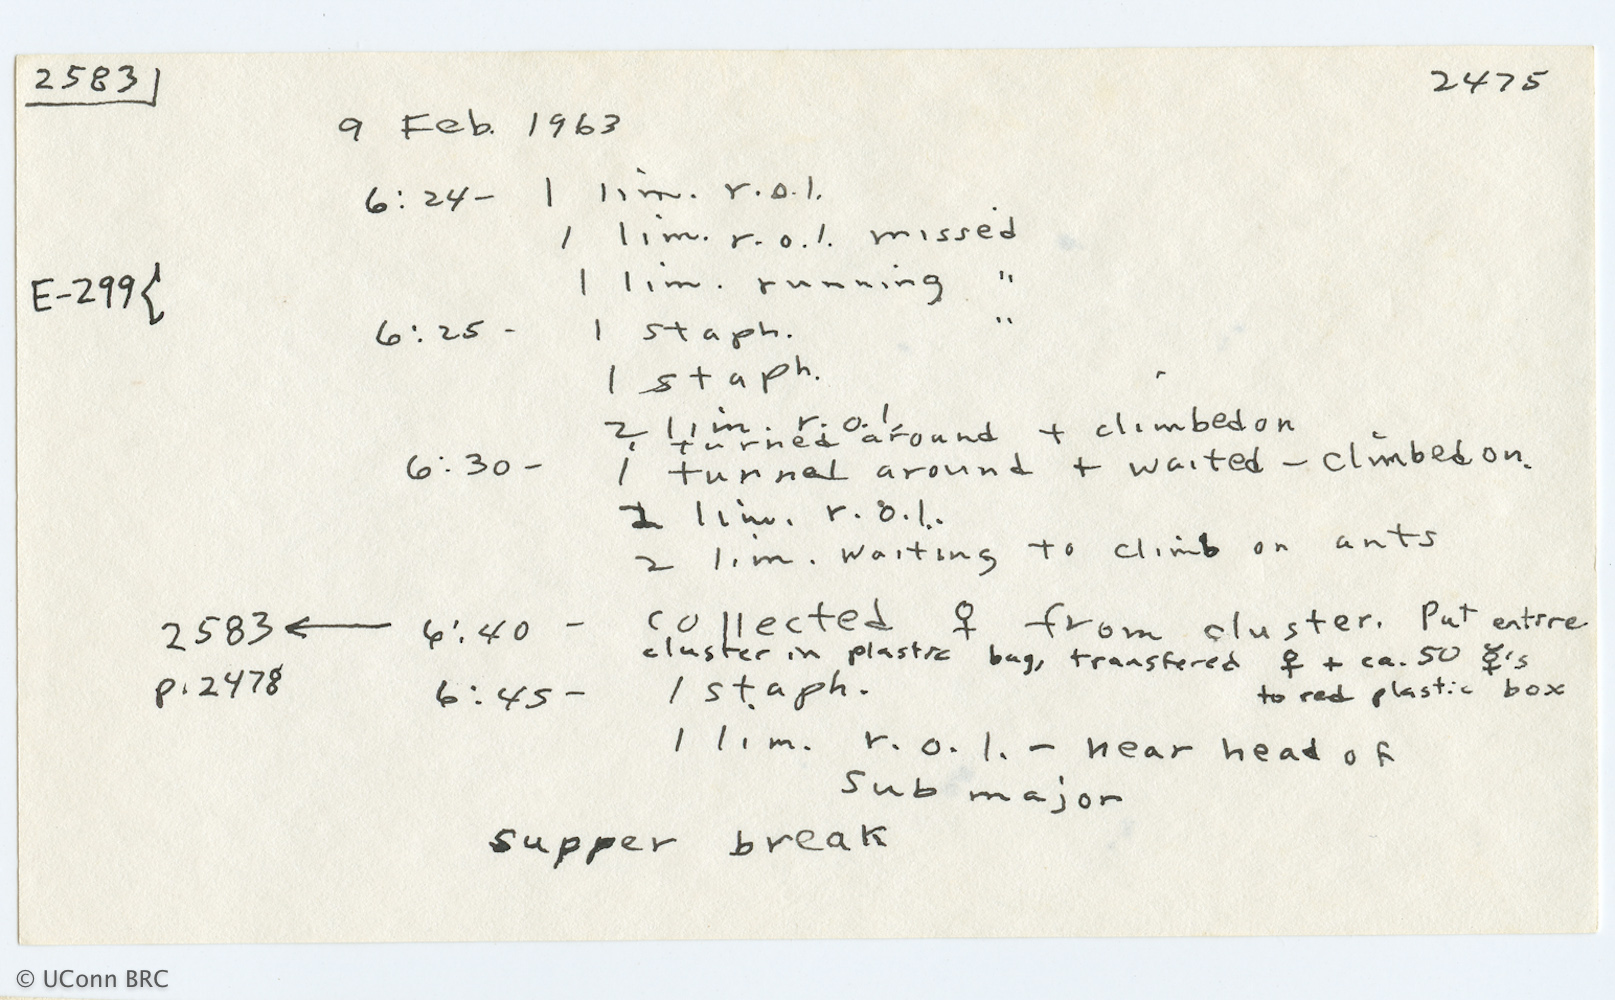 2583 2475
9 Feb. 1963
6:24- 1 lim. r.o.l.
1 lim. r.o.l. missed
E-299{ 1 lim. running "
6:25 - 1 staph. "
1 staph.
2 lim. r.o.l.
1 turned around + climbed on
6:30 - 1 turned around + waited - climbed on.
2 lim. r.o.l.
2 lim. waiting to climb on ants
2583 ← 6:40 - collected ♀ from cluster. Put entire
cluster in plastic bag, transfered ♀ + ca. 50 ☿'s
to red plastic box
p. 2478 6:45 - 1 staph.
1 lim. r.o.l. - near head of
sub major
supper break
© UConn BRC